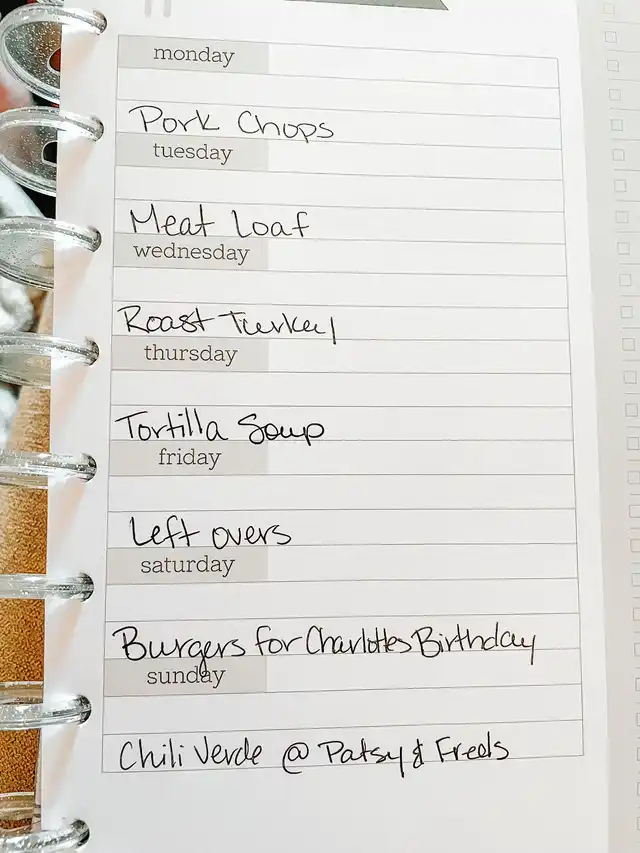 monday
Pork Chops
tuesday
Meat Loaf
wednesday
Roast Turkey
thursday
Tortilla Soup
friday
Left overs
saturday
Burgers for Charlottes Birthday
sunday
Chili Verde @ Patsy & Freds